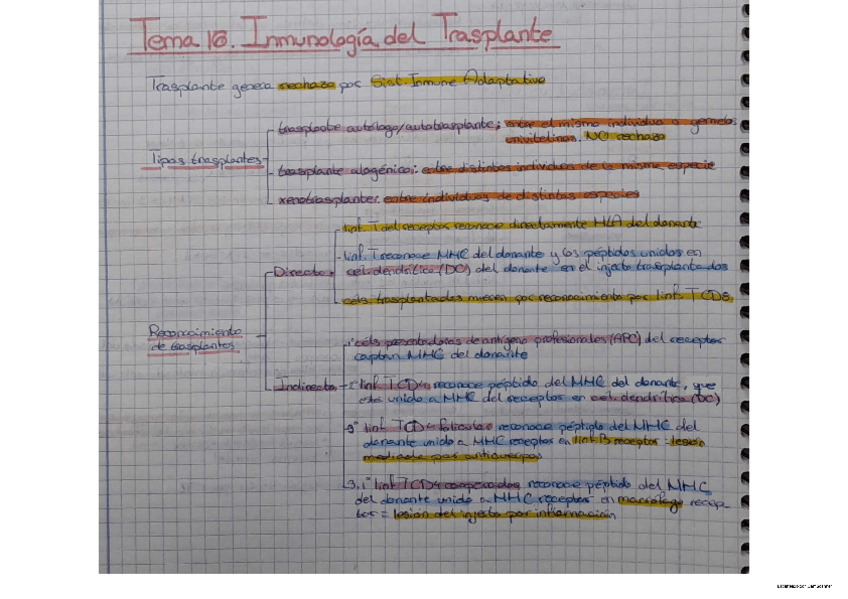 Tema 18. Inmunología del Trasplante
Trasplante genera rechazo por Sist. Inmune Adaptativo
Tipos trasplantes
trasplante autólogo/autotrasplante: entre el mismo individuo o gemelos
univitelinos. NO rechazo
trasplante alogénico: entre distintos individuos de la misma especie
xenotrasplante: entre individuos de distintas especies
Reconocimiento
de trasplantes
Directo
linf. T del receptor reconoce directamente HLA del donante
linf. T reconoce MHC del donante y los péptidos unidos en
cel. dendrítica (DC) del donante en el injerto trasplantados
céls trasplantadas mueren por reconocimiento por linf. TCD8
Indirecto
1º céls presentadoras de antígeno profesionales (APC) del receptor
captan MHC del donante
2º linf TCD4 reconoce péptido del MHC del donante, que
está unido a MHC del receptor en cel. dendrítica (DC)
3º linf TCD4 folicular reconoce péptido del MHC del
donante unido a MHC receptor en linf B receptor = lesión
mediada por anticuerpos
3.1º linf TCD4 cooperador reconoce péptido del MHC
del donante unido a MHC receptor en macrófago recep-
tor = lesión del injerto por inflamación